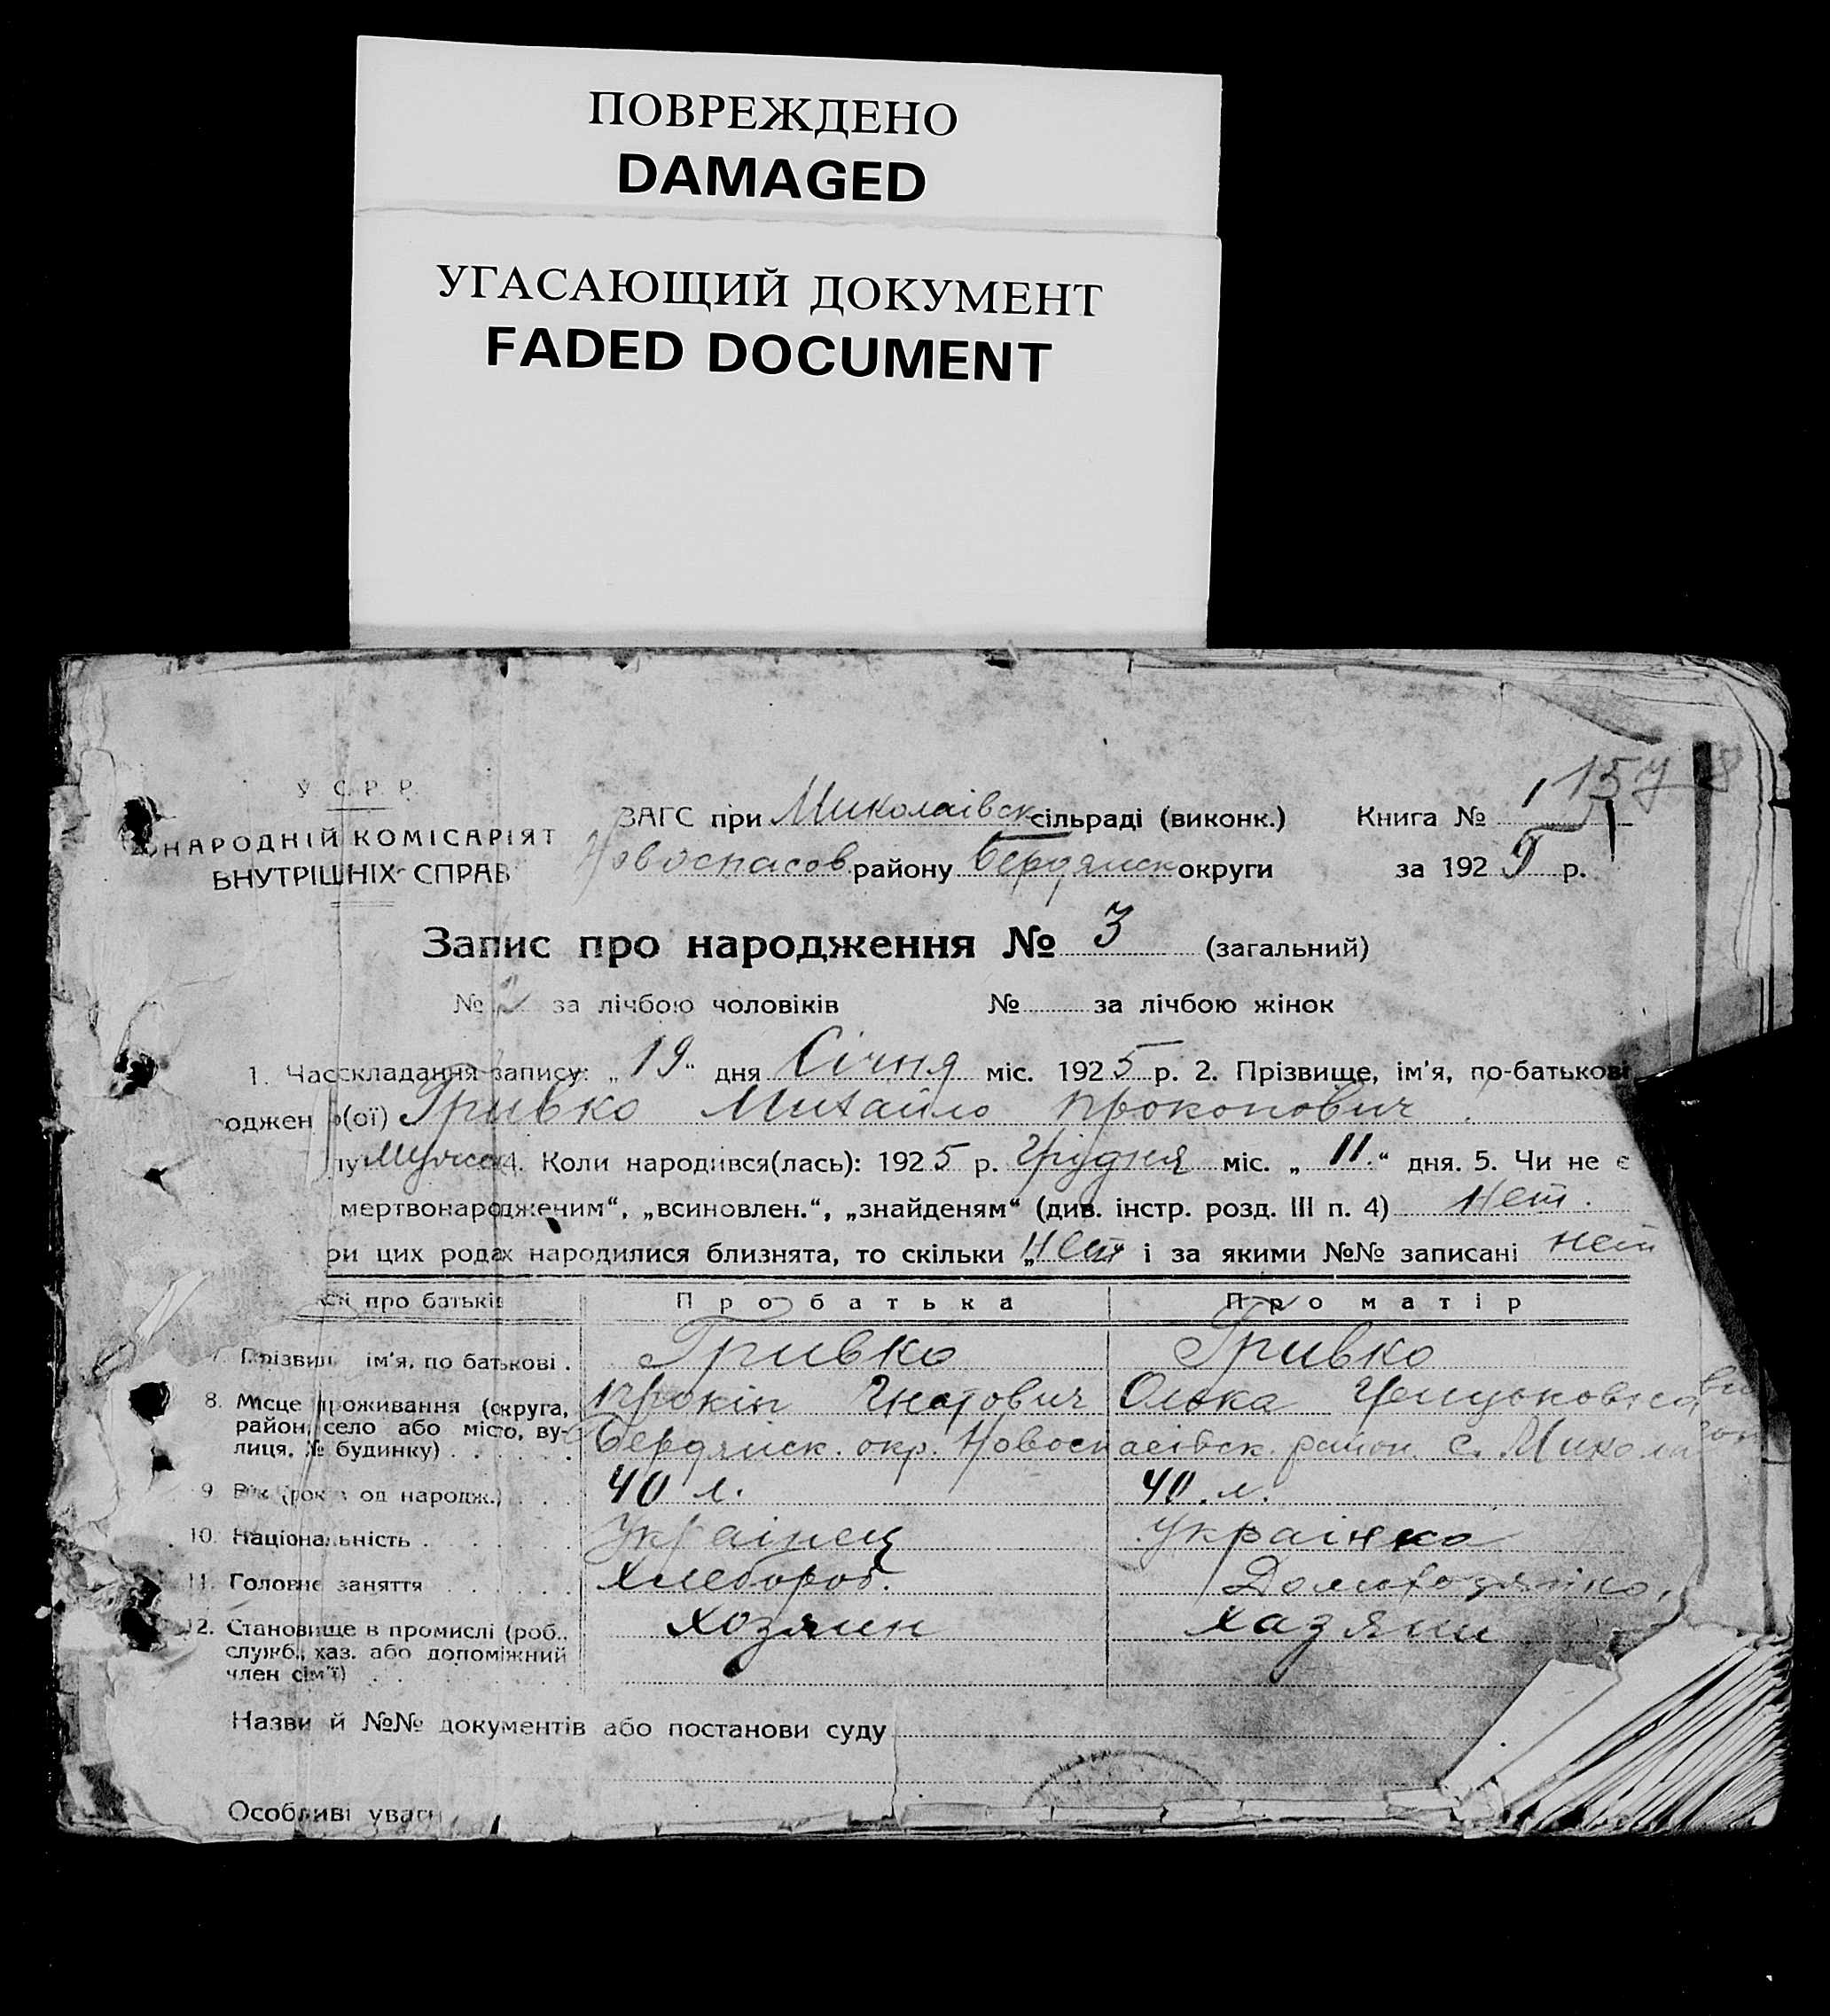 ПОВРЕЖДЕНО
DAMAGED
УГАСАЮЩИЙ ДОКУМЕНТ
FADED DOCUMENT
У. С. Р. Р.
НАРОДНІЙ КОМІСАРІЯТ
ВНУТРІШНІХ СПРАВ
ЗАГС при Миколаівск сільраді (виконк.) Книга № 1 157
Новоспасов. району Бердянск округи за 192 5 р.
Запис про народження № 3 (загальний)
№ 2 за лічбою чоловіків № за лічбою жінок
1. Час складання запису: „ 19 “ дня Січня міс. 192 5 р. 2. Прізвище, ім’я, по-батькові
оджен о(ої) Гривко Михайло Прокопович
4. Коли народився(лась): 192 5 р. Грудня міс. „ 11. “ дня. 5. Чи не є
мертвонародженим“, „всиновлен.“, „знайденям“ (див. інстр. розд. III п. 4) Нет.
ри цих родах народилися близнята, то скільки „ Нет і за якими №№ записані нет
про батьків Про батька Про матір
7. Прізвищ ім’я, по батькові . Гривко Гривко
8. Місце проживання (округа, Прокіп Гнатович Олька
район, село або місто, ву- Бердянск. окр. Новоспасівск. район. С. Микола
лиця, № будинку) . . . . . .
9. Вік (років од народж.) . . . 40 л. 40. л.
10. Національність . . . . . Українец Українка
11. Головне заняття . . . . . Хлебороб. Домохозяйка,
12. Становище в промислі (роб., хозяин хазяин
служб., хаз. або допоміжний
член сім’ї) . . . . . .
Назви й №№ документів або постанови суду
Особливі уваги